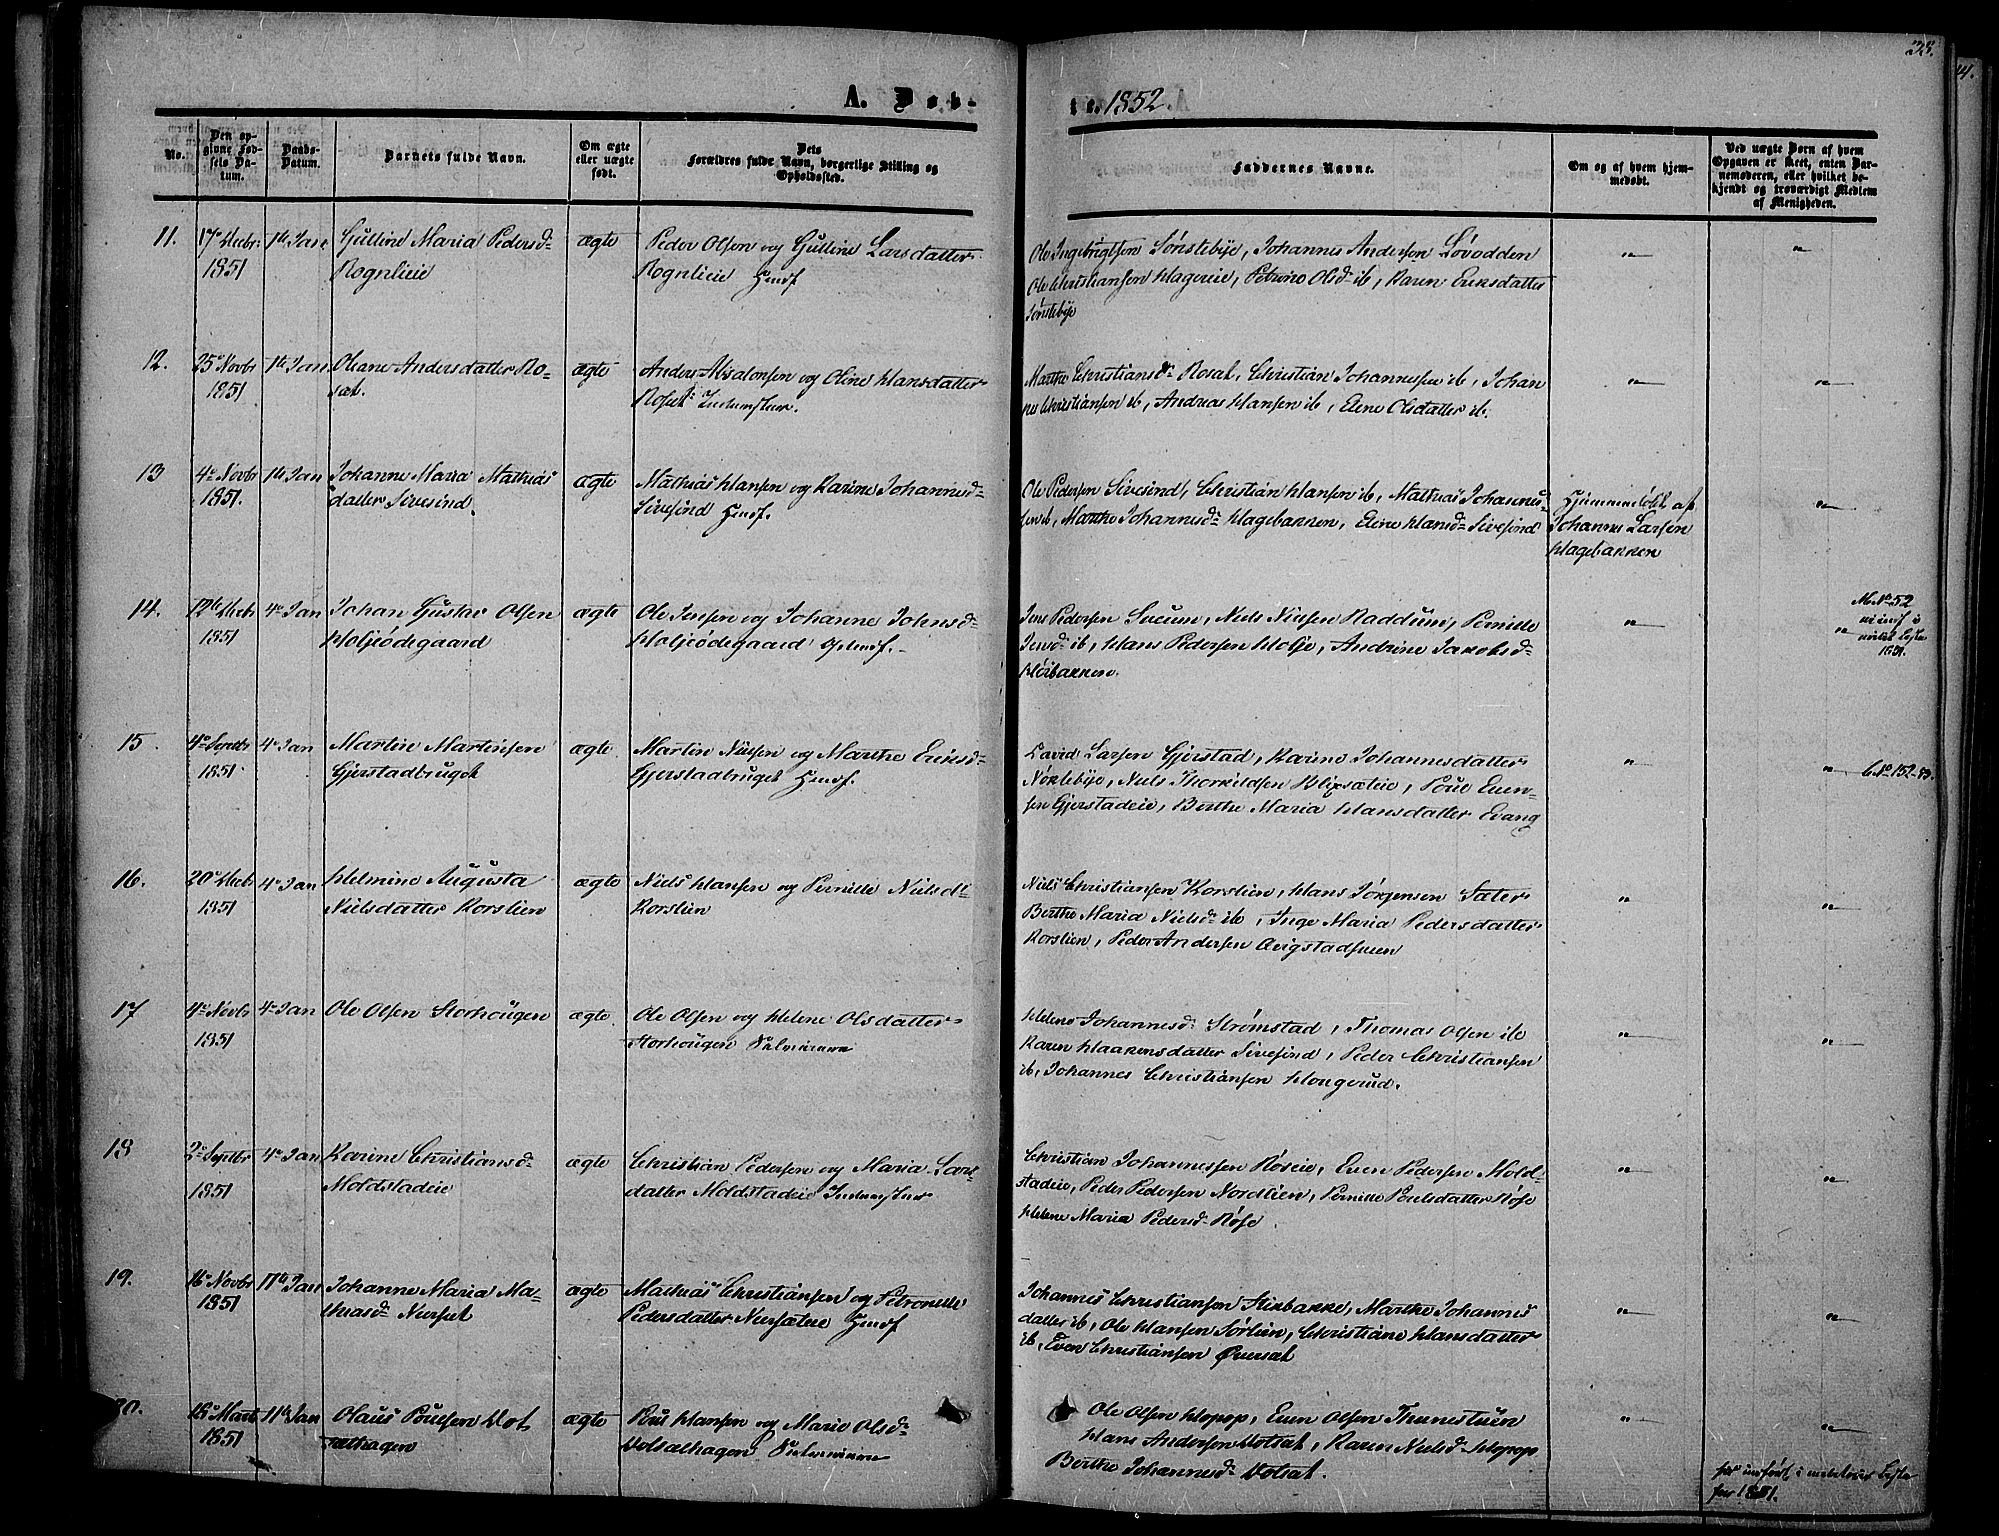 38.
A. Døb-
te. 1852.
No.
Den op-
givne Fød-
sels Da-
tum.
Daabs-
Datum.
Barnets fulde Navn.
Om ægte
eller uægte
født.
Dets
Forældres fulde Navn, borgerlige Stilling og
Opholdssted.
Faddernes Navne.
Om og af hvem hjem-
medøbt.
Ved uægte Børn af hvem
Opgaven er skeet, enten Bar-
nemoderen, eller hvilket be-
kjendt og troværdigt Medlem
af Menigheden.
11. 17de Decbr: 1ste Jan Gulline Maria Pedersd. ægte Peder Olsen og Gulline Larsdatter
1851 Rognlieie Rognlieie Huusf.
Ole Ingebrigtsen Sønstebye, Johannes Andersen Løvodden
Ole Christiansen Hageeie, Petrine Olsd. ib, Karen Eriksdatter
Sønstebye
12. 25de Novbr 1ste Jan Oliane Andersdatter Ro- ægte Anders Absalonsen og Oline Hansdatter
1851 sæt. Roset Inderster.
Marthe Christiansd. Rosat, Christian Johannesen ib, Johan
nes Christiansen ib, Andreas Hansen ib, Elene Olsdatter ib.
13 4de Novbr 1ste Jan Johanne Maria Mathias ægte Mathias Hansen og Karine Johannesd.
1851. datter Sivesind. Sivesind Huusf.
Ole Pedersen Sivesind, Christian Hansen ib, Mathias Johannes-
sen ib, Marthe Johannesd. Hagebakken, Eline Hansd. Sivesind
Hjemmedøbt af
Johannes Larsen
Hagebakken
14. 12te Decbr 4de Jan Johan Gustav Olsen ægte Ole Jensen og Johanne Johnsd.
1851 Holjeødegaard Holjeødegaard
Jens Pedersen Sueum, Niels Nielsen Raddum, Pernille
Jensd. ib, Hans Pedersen Holje, Andrine Jakobsd.
Høibakken.
M. No 52
1851.
15. 4de Septbr 4de Jan Martine Martinsen ægte Martin Nielsen og Marthe Eriksd.
1851. Gjerstadbruget Gjerstadbruget Huusf.
David Larsen Gjerstad, Karine Johannesdatter
Nøklebye, Niels Thorkildsen Blixsæteie, Poul Even-
sen Gjerstadeie, Berthe Maria Hansdatter Evang
16. 20de Decbr 4de Jan Helmine Augusta ægte Niels Hansen og Pernille Nielsd.
1851 Nielsdatter Korslien Korslien
Niels Christiansen Korslien, Hans Jørgensen Sæter
Berthe Maria Nielsd. ib, Inge Maria Pedersdatter
Korslien, Peder Andersen
17 4de Novbr 4de Jan Ole Olsen Storhougen ægte Ole Olsen og Helene Olsdatter
1851 Storhougen Selveiere
Helene Johannesd. Strømstad, Thomas Olsen ib
Karen Haakensdatter Sivesind, Peder Christiansen
ib, Johannes Christiansen Hougerud.
18 2de Septbr 4de Jan Karine Christiansd. ægte Christian Pedersen og Maria Lars
1851 Moldstadeie datter Moldstadeie Inderster
Christian Johannessen Røseie, Even Pedersen Mold-
stadeie, Peder Pedersen Nordlien, Pernille Poulsdatter Røse
Helene Maria Pedersd. Røse.
19. 16de Novbr 11te Jan Johanne Maria Ma- ægte Mathias Christiansen og Petronelle
1851 thiasd. Nerset Pedersdatter Nersæteie Huusf
Johannes Christiansen Stikbakke, Marthe Johannes
datter ib, Ole Hansen Sørlien, Christiane Hansdatter
ib, Even Christiansen Øversæt
20. 18de Marts 11te Jan Olaus Poulsen Vol ægte Poul Hansen og Marie Olsd.
1851 sæthagen Volsæthagen Selveiere
Ole Olsen Hopop, Even Olsen Thunestuen
Hans Andersen Volsat, Karen Nielsd. Hopop
Berthe Johannesd. Volsat.
for 1851.